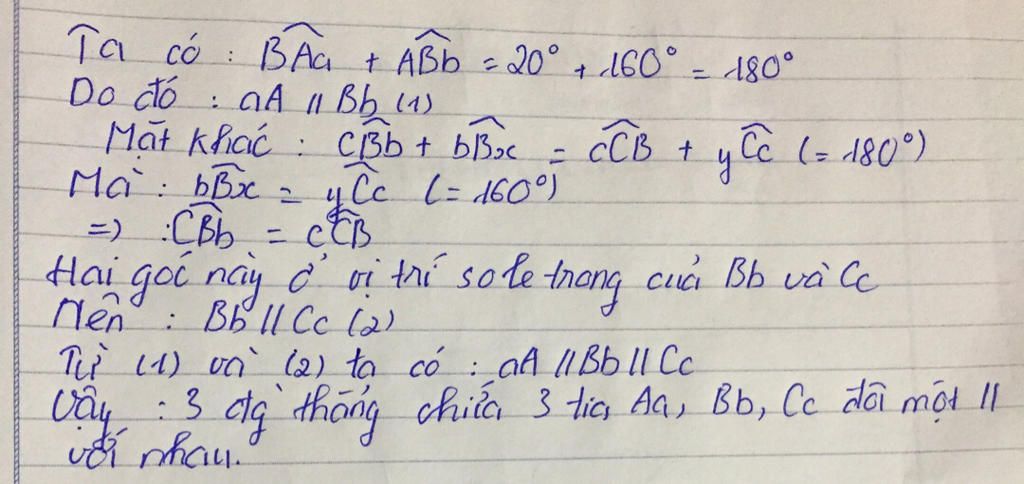 Ta có : BÂa + AB̂b = 20° + 160° = 180°
Do đó : aA // Bb (1)
Mặt khác : CB̂b + bB̂x = cĈB + yĈc (= 180°)
Mà : bB̂x = yĈc (= 160°)
=> : CB̂b = cĈB
Hai góc này ở vị trí so le trong của Bb và Cc
Nên : Bb // Cc (2)
Từ (1) và (2) ta có : aA // Bb // Cc
Vậy : 3 đg thẳng chứa 3 tia Aa, Bb, Cc đôi một //
với nhau.